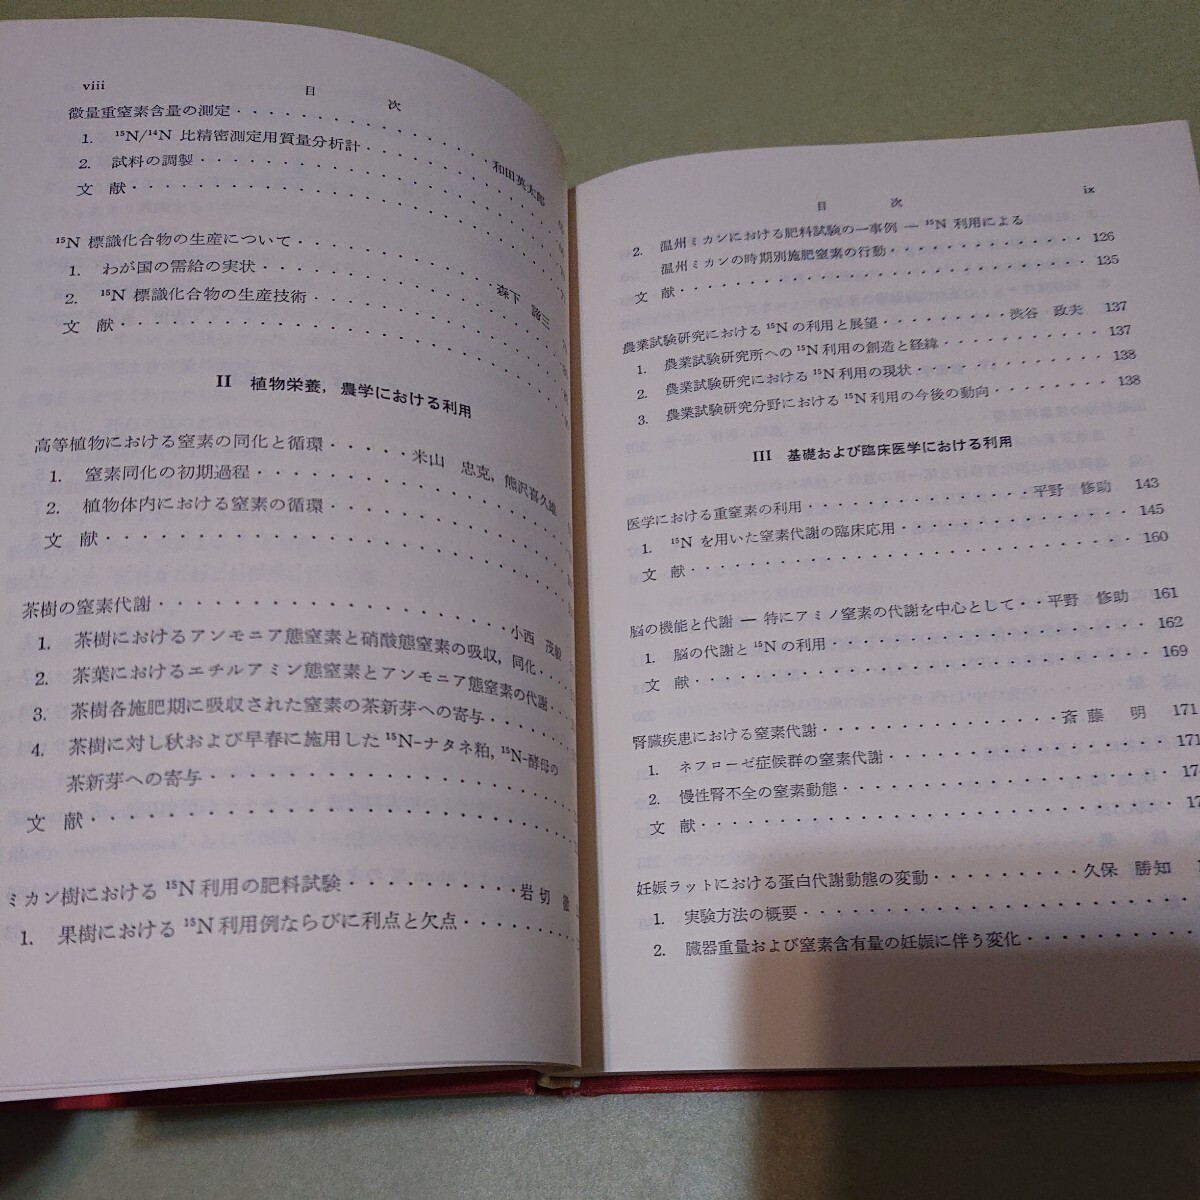 viii
目 次
微量重窒素含量の測定 和田英太郎
1. ¹⁵N/¹⁴N 比精密測定用質量分析計
2. 試料の調製
文 献
¹⁵N 標識化合物の生産について 森下 諦三
1. わが国の需給の実状
2. ¹⁵N 標識化合物の生産技術
文 献
II 植物栄養，農学における利用
高等植物における窒素の同化と循環 米山 忠克，熊沢喜久雄
1. 窒素同化の初期過程
2. 植物体内における窒素の循環
文 献
茶樹の窒素代謝 小西 茂毅
1. 茶樹におけるアンモニア態窒素と硝酸態窒素の吸収，同化
2. 茶葉におけるエチルアミン態窒素とアンモニア態窒素の代謝
3. 茶樹各施肥期に吸収された窒素の茶新芽への寄与
4. 茶樹に対し秋および早春に施用した ¹⁵N-ナタネ粕，¹⁵N-酵母の
茶新芽への寄与
文 献
ミカン樹における ¹⁵N 利用の肥料試験 岩切
1. 果樹における ¹⁵N 利用例ならびに利点と欠点
目 次 ix
2. 温州ミカンにおける肥料試験の一事例 — ¹⁵N 利用による
温州ミカンの時期別施肥窒素の行動 126
文 献 135
農業試験研究における ¹⁵N の利用と展望 渋谷 政夫 137
1. 農業試験研究所への ¹⁵N 利用の創造と経緯 137
2. 農業試験研究における ¹⁵N 利用の現状 138
3. 農業試験研究分野における ¹⁵N 利用の今後の動向 138
III 基礎および臨床医学における利用
医学における重窒素の利用 平野 修助 143
1. ¹⁵N を用いた窒素代謝の臨床応用 145
文 献 160
脳の機能と代謝 — 特にアミノ窒素の代謝を中心として 平野 修助 161
1. 脳の代謝と ¹⁵N の利用 162
文 献 169
腎臓疾患における窒素代謝 斎藤 明 171
1. ネフローゼ症候群の窒素代謝 171
2. 慢性腎不全の窒素動態 17
文 献 17
妊娠ラットにおける蛋白代謝動態の変動 久保 勝知 1
1. 実験方法の概要
2. 臓器重量および窒素含有量の妊娠に伴う変化